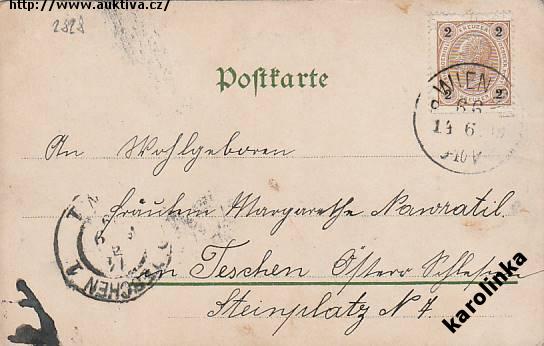 http://www.auktiva.cz/
2828
2 KREUZER 2
2 2
Postkarte
WIEN
66
14 6
An Wohlgeboren
Fräulein Margarethe Nawratil
in Teschen Österr. Schlesien
Steinplatz N 7.
TESCHEN 1
karolinka